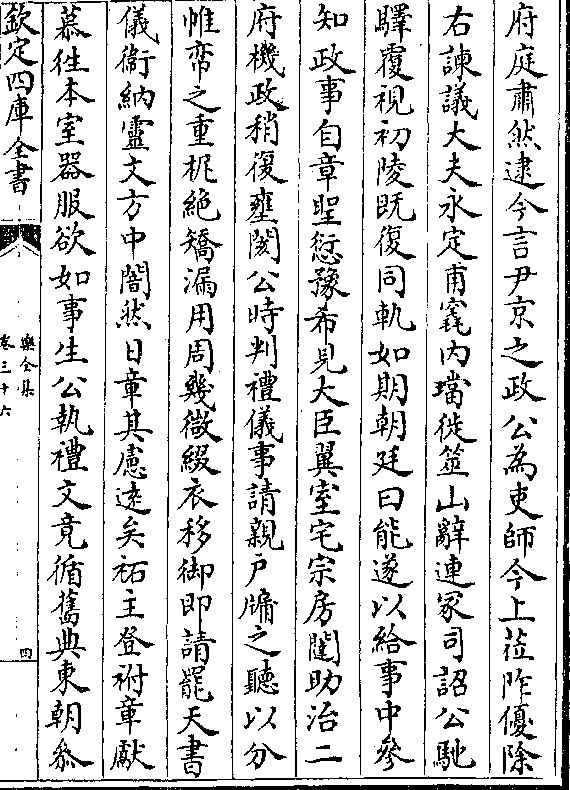 府庭肅然逮今言尹京之政公為吏師今上莅阼優除
右諫議大夫永定甫窀内璫徙筮山辭連冢司詔公馳
驛覆視初陵既復同軌如期朝廷曰能遂以給事中叅
知政事自章聖愆豫希見大臣翼室宅宗房闥助治二
府機政稍復壅閼公時判禮儀事請親戸牖之聽以分
帷帟之重抳絶矯漏用周幾微綴衣移御即請罷天書
儀衛納靈文方中闇然日章其慮逺矣祏主登祔章獻
慕徃本室器服欲如事生公執禮文竟循舊典東朝叅
欽定四庫全書
樂全集
卷三十六
四